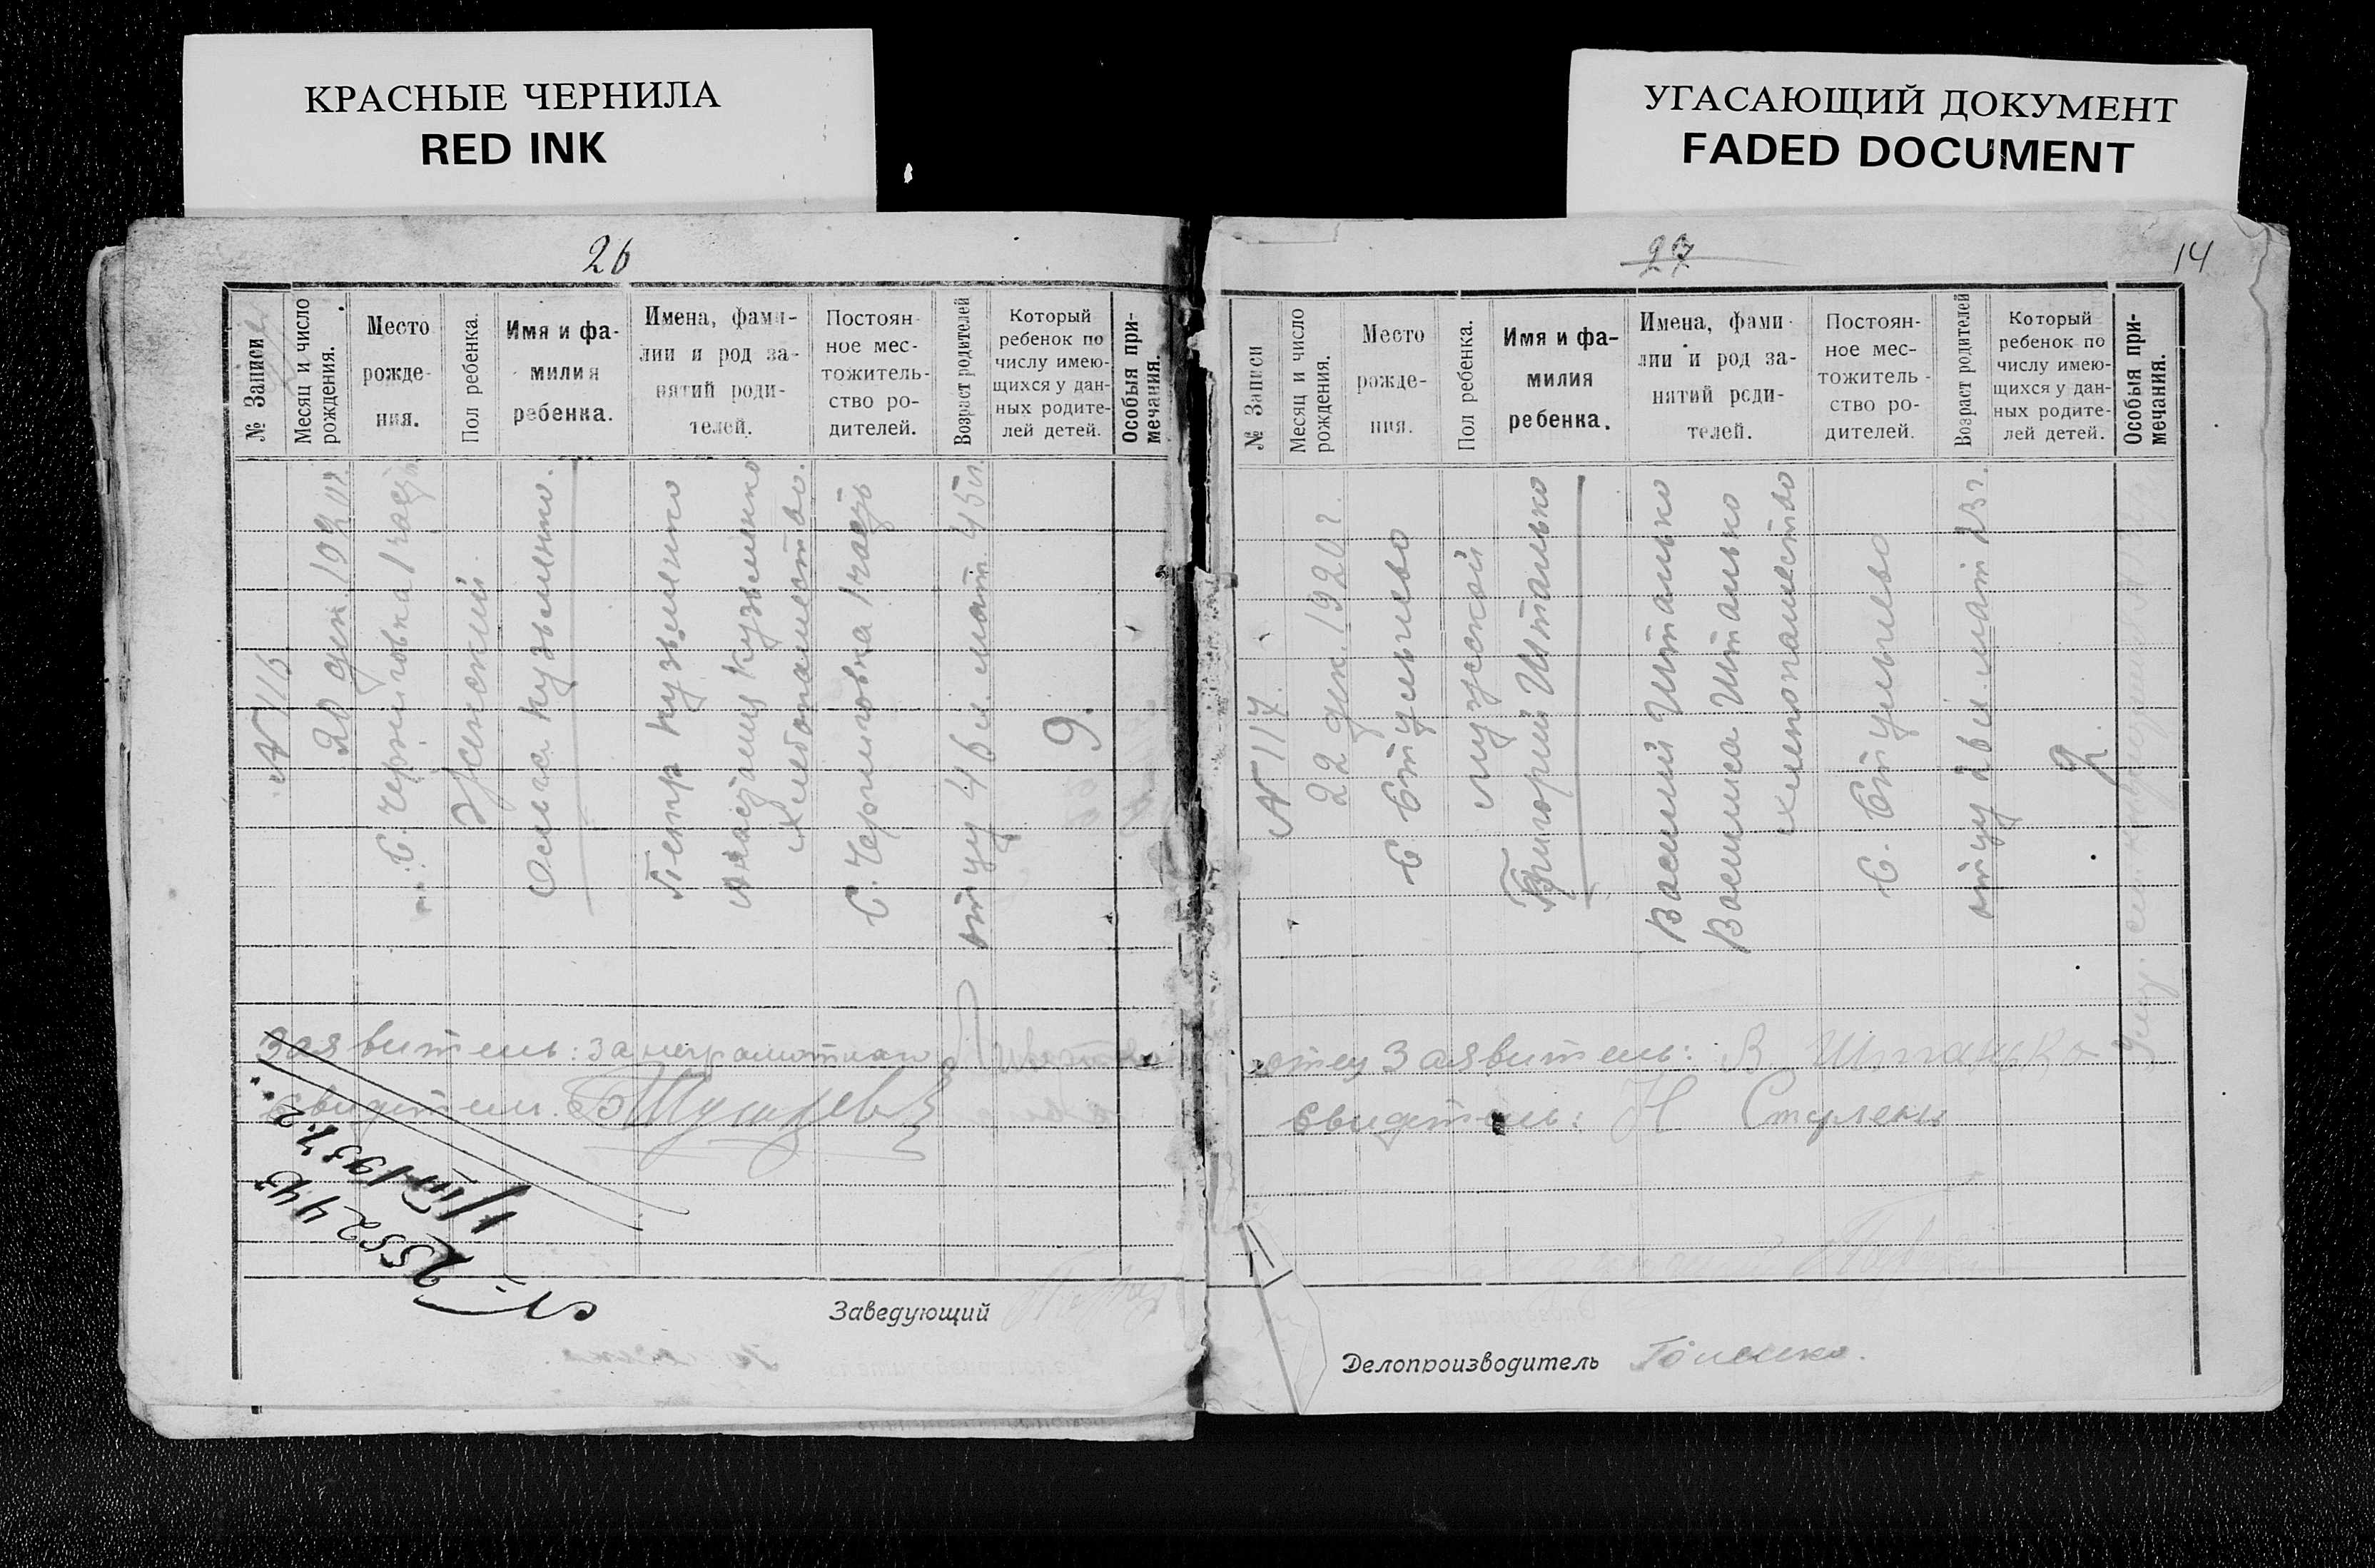 КРАСНЫЕ ЧЕРНИЛА
RED INK
УГАСАЮЩИЙ ДОКУМЕНТ
FADED DOCUMENT
26
№ Записи
Месяц и число
рождения.
Место
рожде-
ния.
Пол ребенка.
Имя и фа-
милия
ребенка.
Имена, фами-
лии и род за-
нятий роди-
телей.
Постоян-
ное мес-
тожитель-
ство ро-
дителей.
Возраст родителей
Который
ребенок по
числу имею-
щихся у дан-
ных родите-
лей детей.
Особыя при-
мечания.
№ 116
20 дек. 192
С. Черниговка 1 часть
Женский
Ольга Кузьменко.
Петр Кузьменко
Кузьменко
Хлебопашество.
С. Черниговка 1 часть
отцу 46 л. мат. 45 л.
9.
Заявитель: за неграмотную
Свидетели.
№ 255244
1/III 1937 г.
Заведующий
27
14
№ Записи
Месяц и число
рождения.
Место
рожде-
ния.
Пол ребенка.
Имя и фа-
милия
ребенка.
Имена, фами-
лии и род за-
нятий роди-
телей.
Постоян-
ное мес-
тожитель-
ство ро-
дителей.
Возраст родителей
Который
ребенок по
числу имею-
щихся у дан-
ных родите-
лей детей.
Особыя при-
мечания.
№ 117.
22 дек. 1920 г.
С.
мужской
Григорий Штанько
Василий Штанько
Василиса Штанько
хлебопашество
С.
отцу 26 л. мат 23 г.
2.
отец Заявитель: В. Штанько
Свидетель: Н
Делопроизводитель